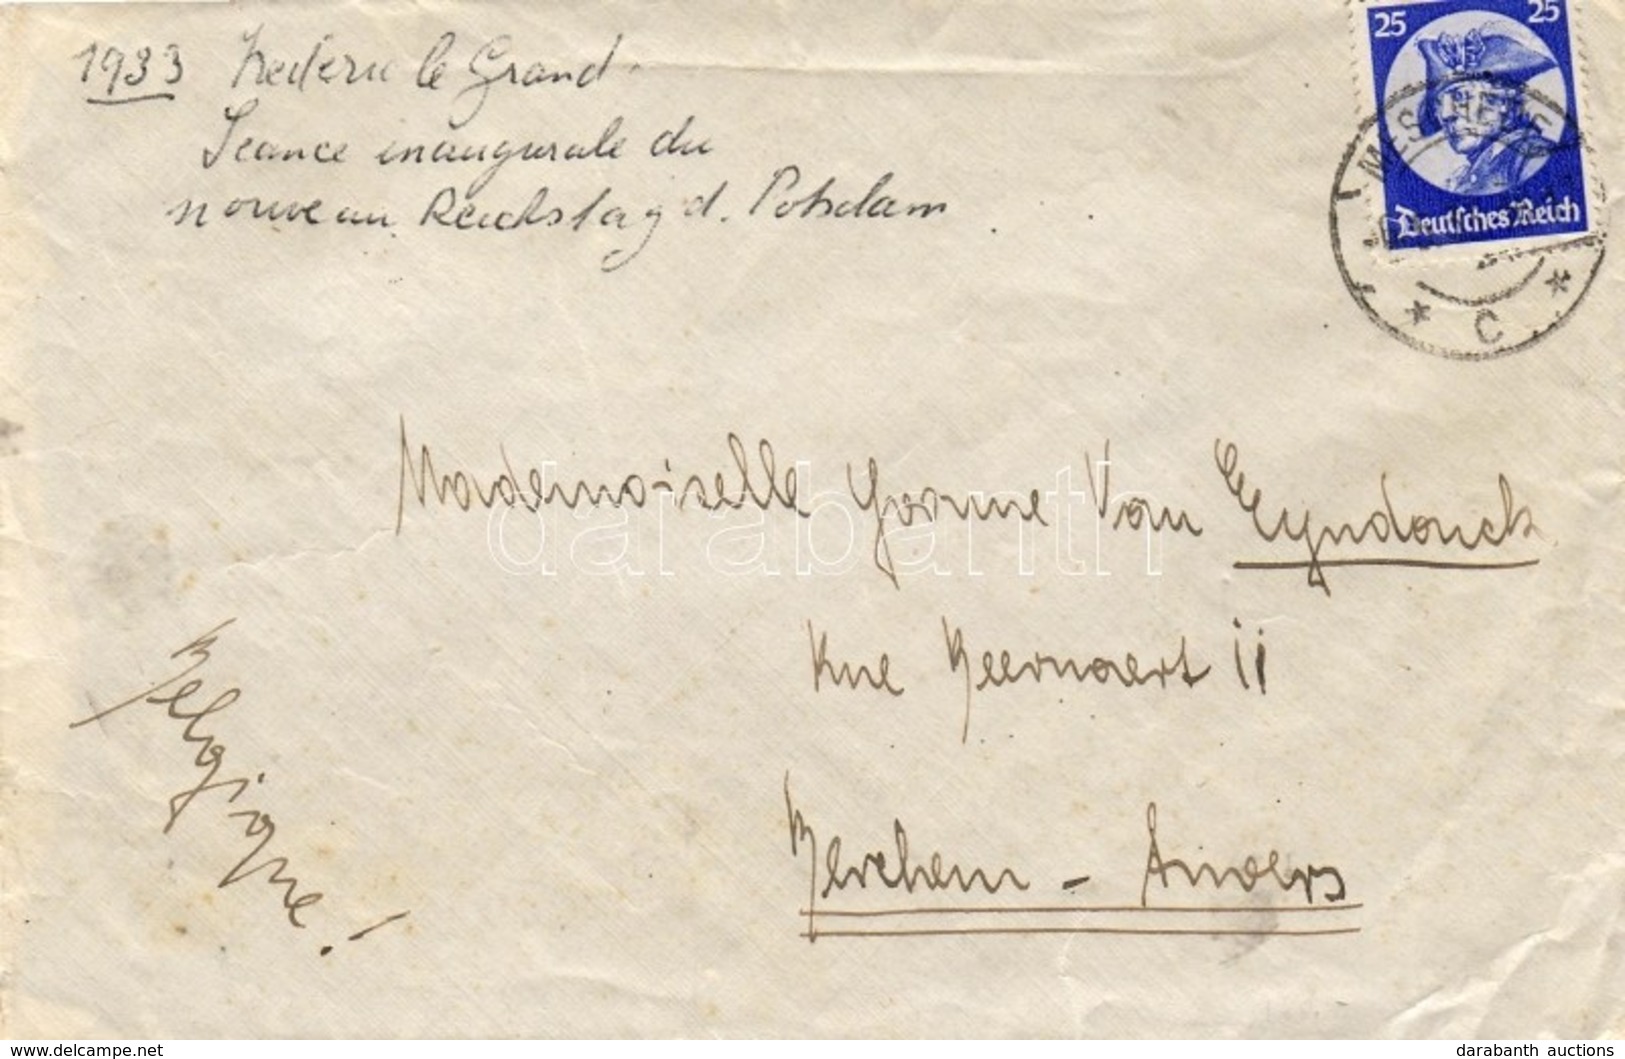 1933 Frederic le Grand.
Seance inaugurale du
nouveau Reichstag d. Potsdam
25 25
MESCHEDE
Deutsches Reich
* C *
Mademoiselle Yvonne Van Eyndonck
Rue Beernaert 11
Berchem - Anvers
Belgique!
darabanth
www.delcampe.net
darabanth auctions